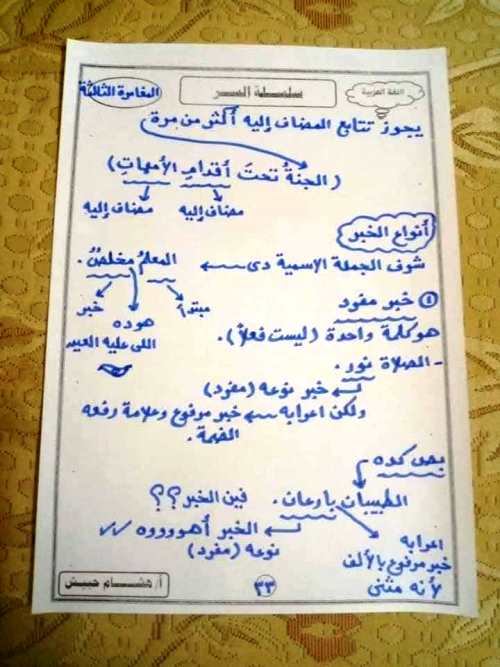 اللغة العربية
سلسلة السر
المغامرة الثالثة
يجوز تتابع المضاف إليه أكثر من مرة
(الجنةُ تحتَ أقدامِ الأمهاتِ)
مضاف إليه مضاف إليه
أنواع الخبر
شوف الجملة الاسمية دى ← المعلمُ مخلصٌ.
مبتدأ خبر
هوده
اللى عليه العين
① خبر مفرد
هو كلمة واحدة (ليست فعلاً).
- الصلاة نور.
خبر نوعه (مفرد)
ولكن اعرابه ← خبر مرفوع وعلامة رفعه
الضمة.
بص كده
الطبيبان بارعان. فين الخبر؟؟
الخبر أهوووووه ✓✓
نوعه (مفرد)
اعرابه
خبر مرفوع بالألف
لأنه مثنى
٣٣
أ/ هشام حبيش